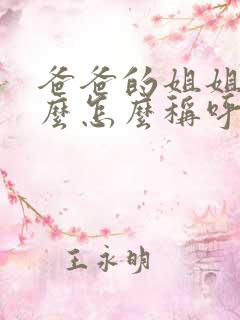 爸爸的姐姐
麼怎麼稱呼
王永明